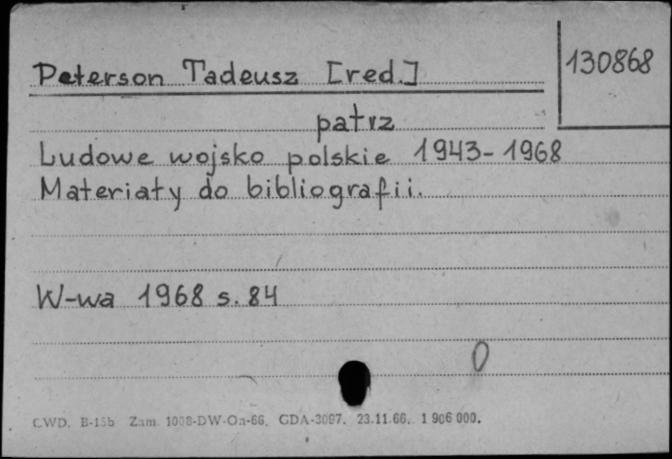 130868
Peterson Tadeusz [red.]
patrz
Ludowe wojsko polskie 1943-1968
Materiały do bibliografii.
W-wa 1968 s. 84
0
CWD. B-15b Zam. 1008-DW-Oa-66. GDA-3097. 23.11.66. 1 906 000.